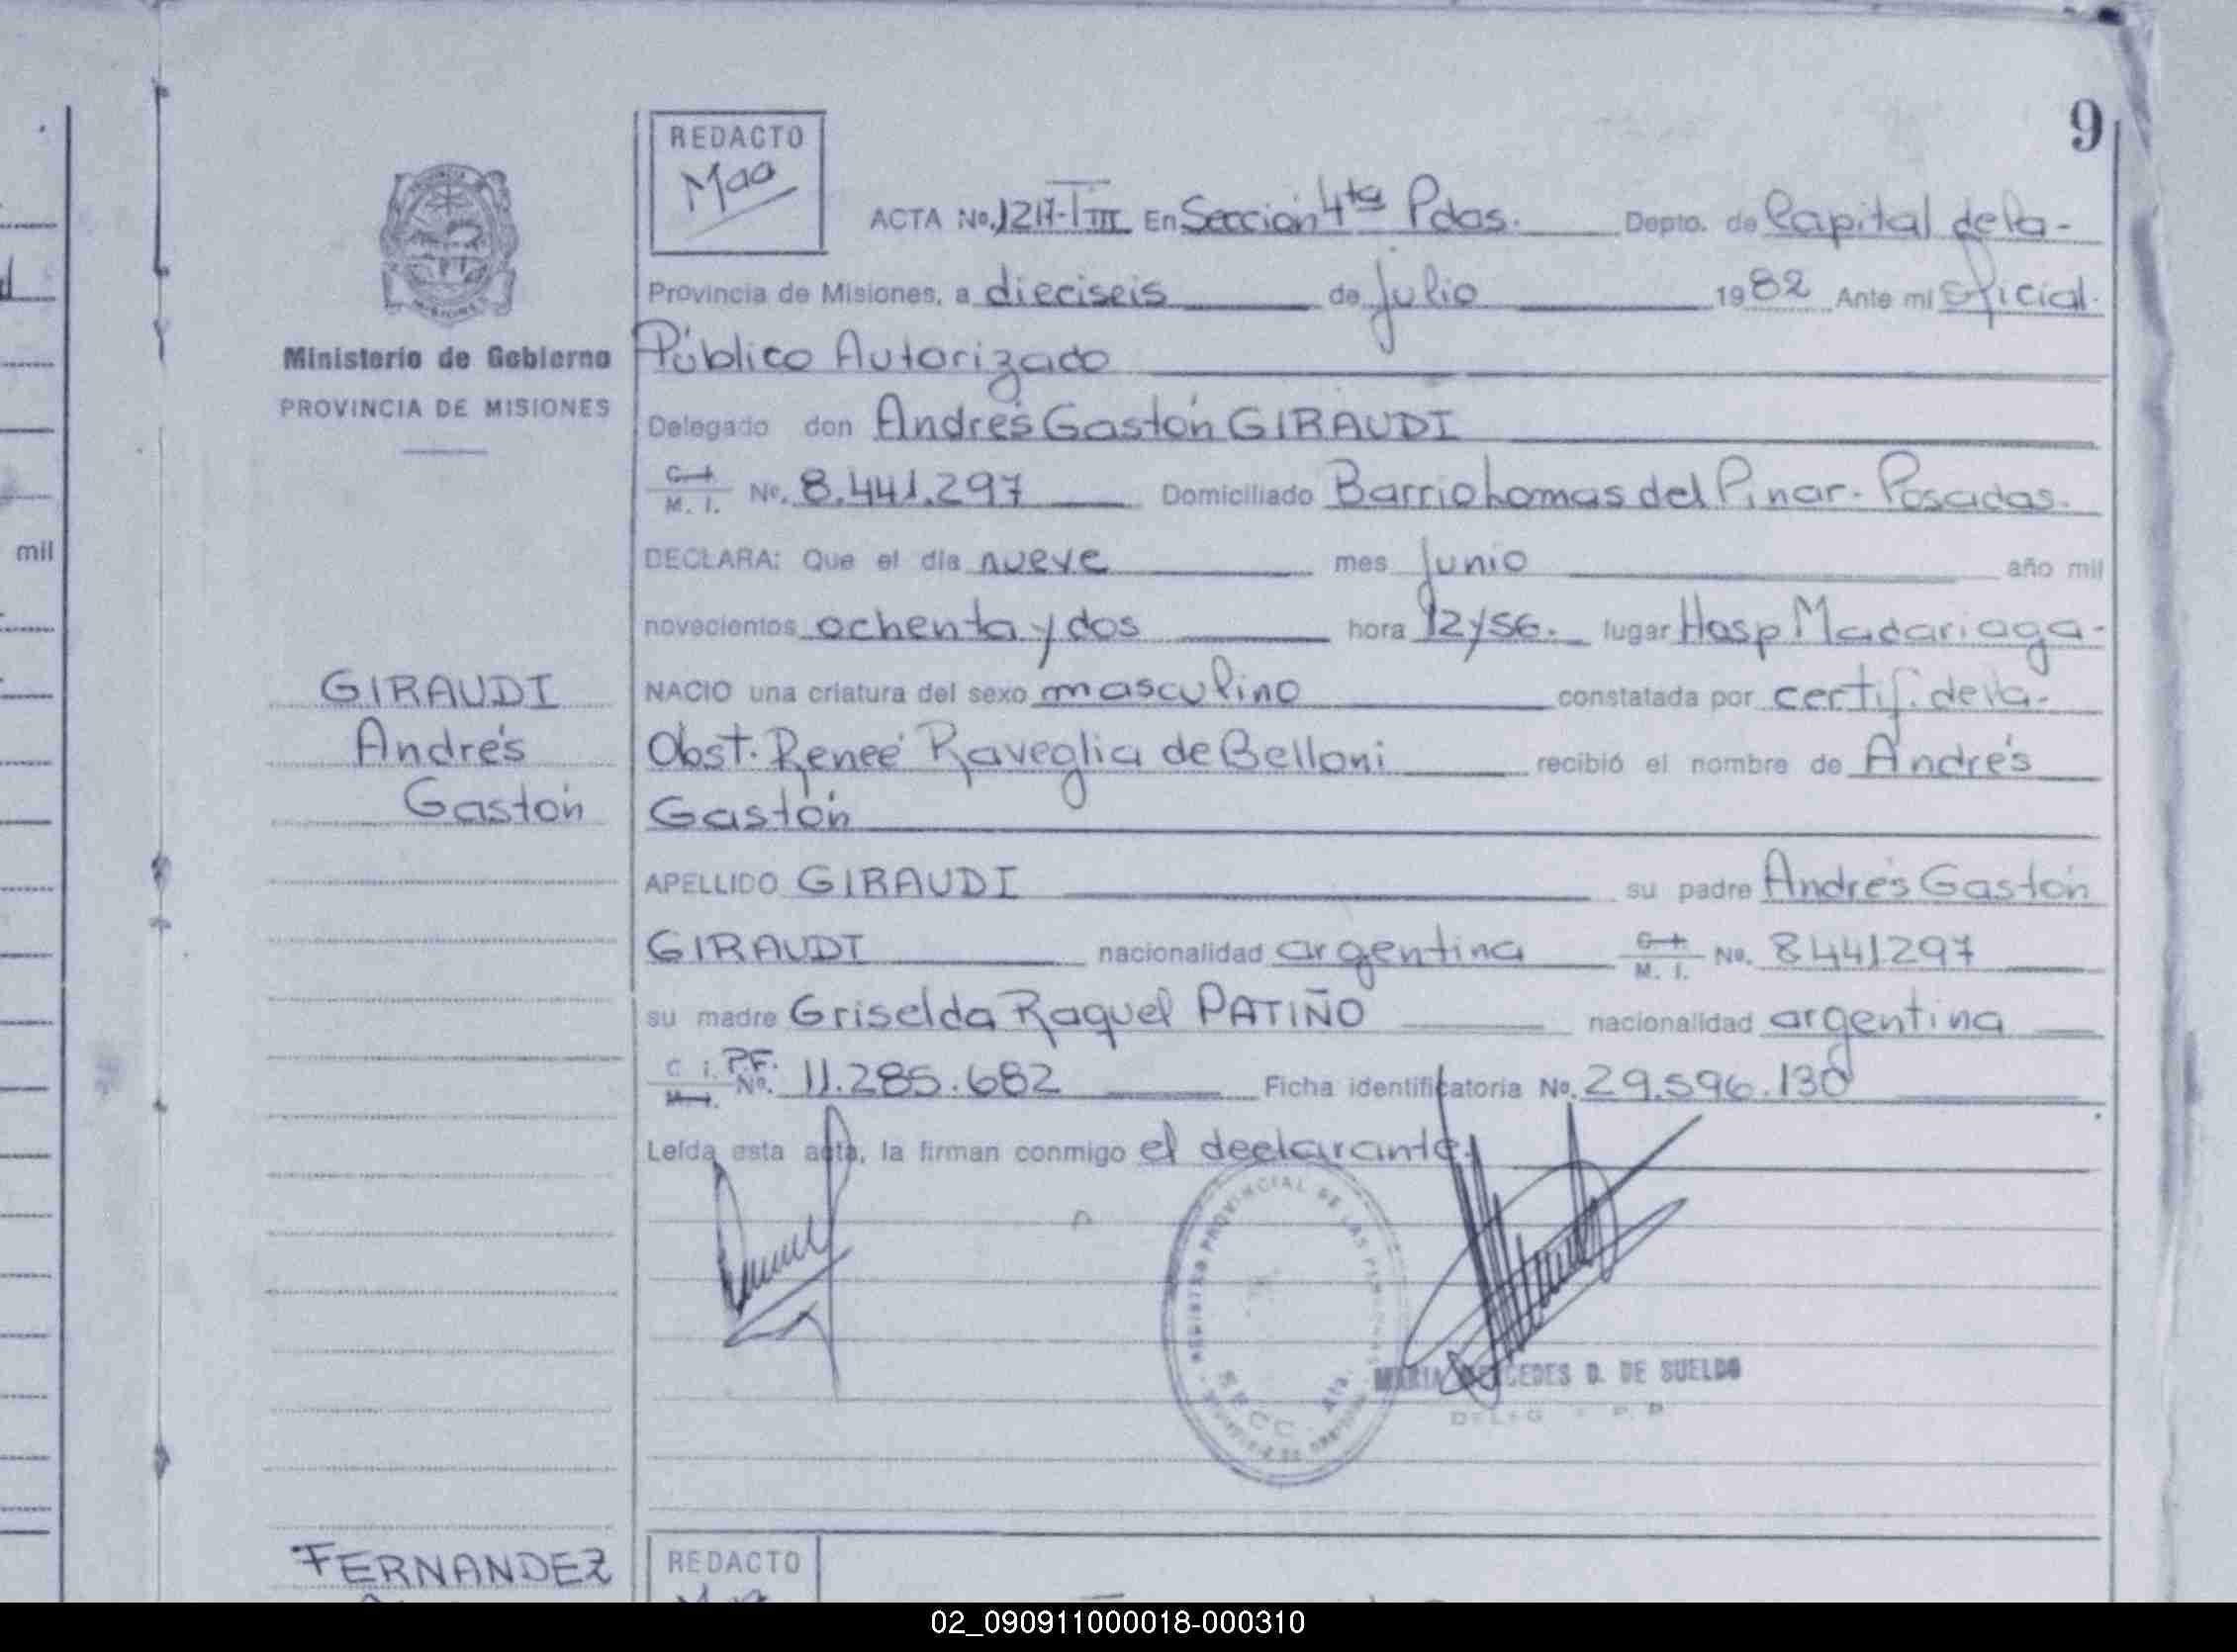 9
REDACTO
Maa
ACTA No. 1217-T III En Sección 4ta Pdas. Depto. de Capital de la-
Provincia de Misiones, a dieciseis de julio 1982 Ante mi Oficial.
Ministerio de Gobierno
PROVINCIA DE MISIONES
Público Autorizado
Delegado don Andrés Gastón GIRAUDI
C.I. M. I. No. 8.441.297 Domiciliado Barrio Lomas del Pinar. Posadas.
mil
DECLARA: Que el día nueve mes junio año mil
novecientos ochenta y dos hora 12 y 56. lugar Hosp Madariaga-
GIRAUDI
Andrés
Gastón
NACIO una criatura del sexo masculino constatada por certif. de la-
Obst. Reneé Raveglia de Belloni recibió el nombre de Andrés
Gastón
APELLIDO GIRAUDI su padre Andrés Gastón
GIRAUDI nacionalidad argentina C.I. M. I. No. 8441297
su madre Griselda Raquel PATIÑO nacionalidad argentina
C I. P.F. M. I. No. 11.285.682 Ficha identificatoria No. 29.596.130
Leída esta acta, la firman conmigo el declarante.
REGISTRO PROVINCIAL DE LAS PERSONAS
SECC. 4ta.
MARIA MERCEDES D. DE SUELDO
FERNANDEZ
REDACTO
02_090911000018-000310